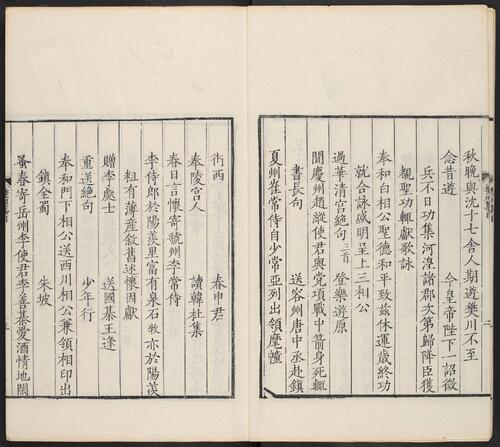 秋晚與沈十七舍人期遊樊川不至
念昔遊 今皇帝陛下一詔徵
兵不日功集河湟諸郡次第歸降臣獲
覩聖功輒獻歌詠
奉和白相公聖德和平致玆休運歲終功
就合詠盛明呈上三相公
過華清宮絕句三首 登樂遊原
聞慶州趙縱使君與党項戰中箭身死輒
書長句 送容州唐中丞赴鎮
夏州崔常侍自少常亞列出領麾幢
街西 春申君
奉陵宮人 讀韓杜集
春日言懷寄虢州李常侍
李侍郎於陽羨里富有泉石牧亦於陽羨
粗有薄産敘舊述懷因獻
贈李處士 送國棊王逢
重送絕句 少年行
奉和門下相公送西川相公兼領相印出
鎮全蜀 朱坡
蚤春寄岳州李使君李善棊愛酒情地閑